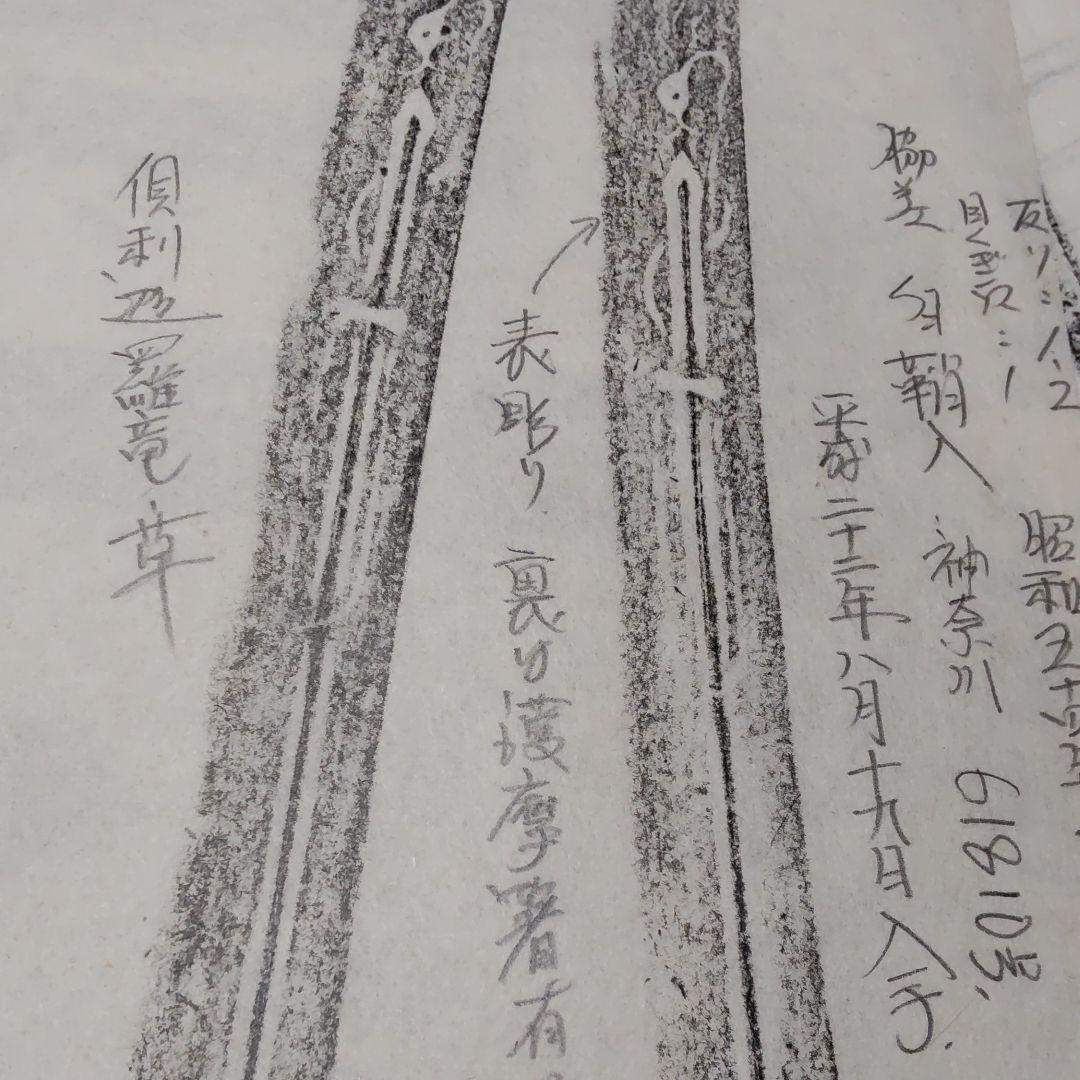 反り:1.2
昭和五十四年
目くぎ穴:1
脇差 白鞘入 神奈川 61810号
平成二十二年八月十九日入手
表彫り 裏は護摩箸有
倶利迦羅竜 草